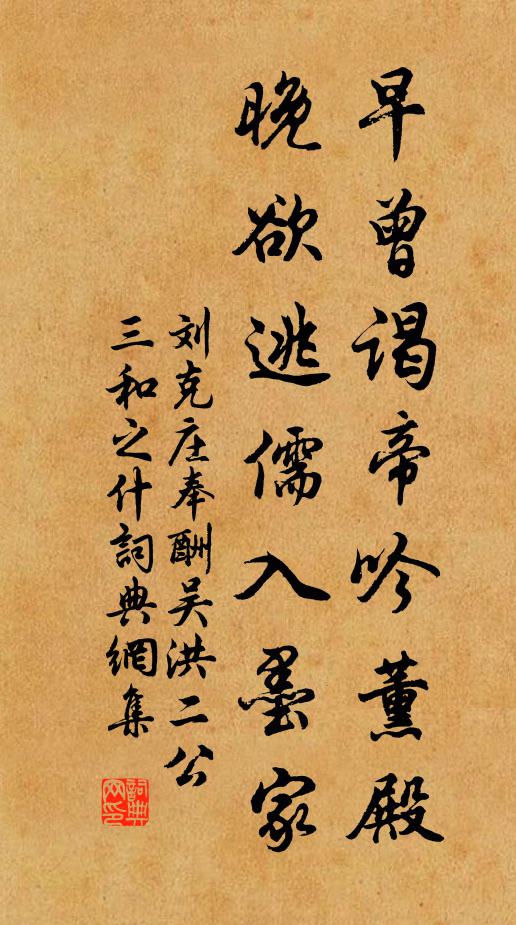 早曾谒帝吟薰殿
晚欲逃儒入墨家
刘克庄奉酬吴洪二公
三和之什詞典網集
詞典
网印